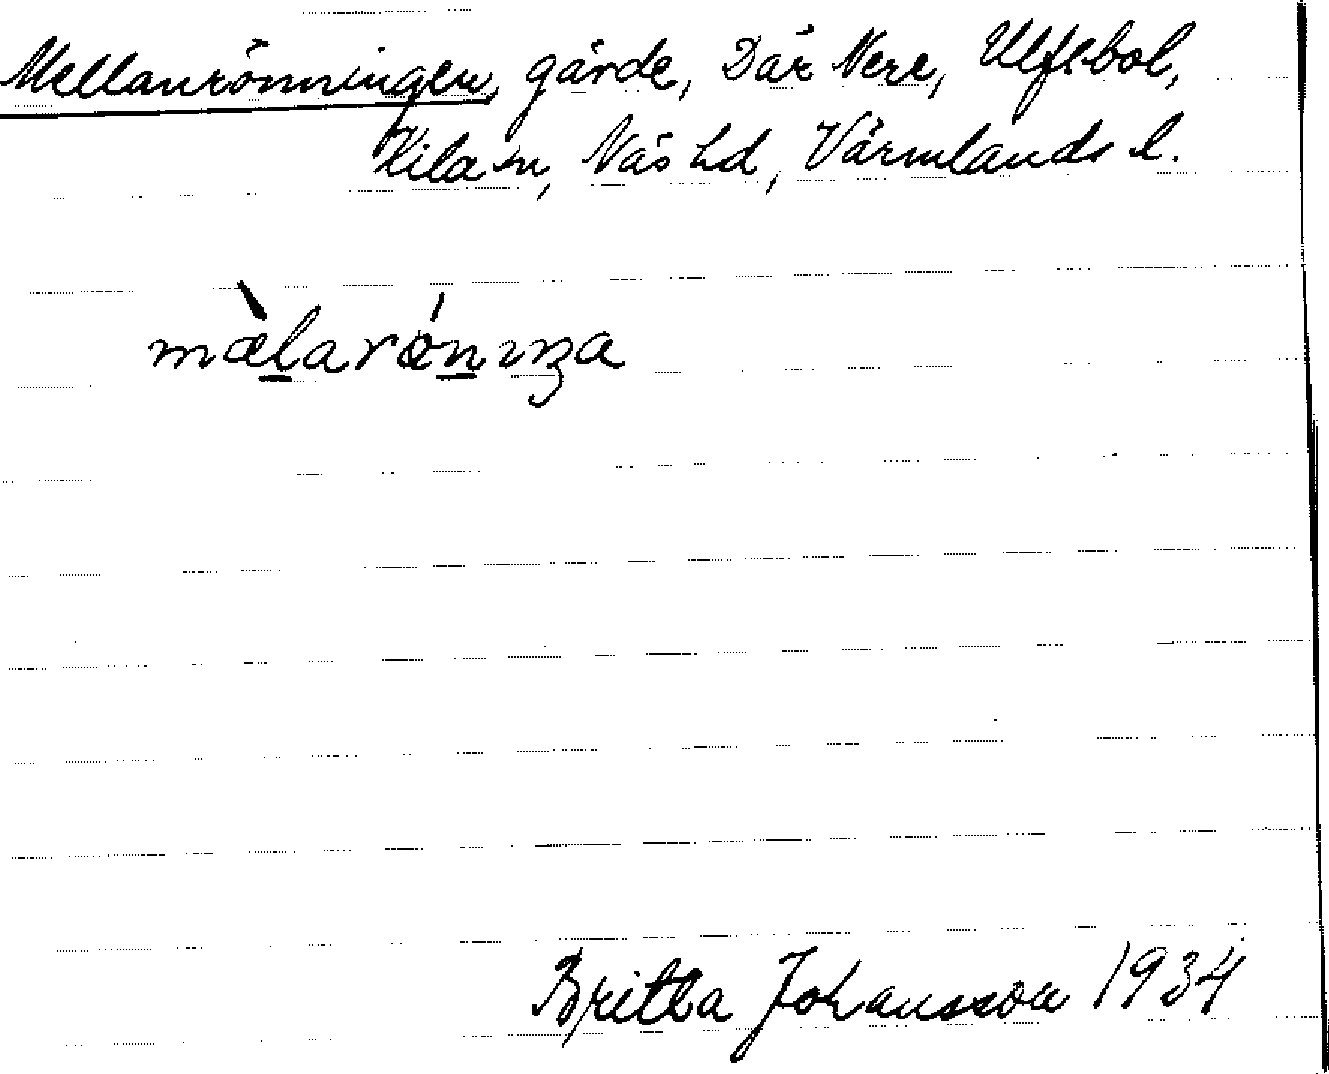 Mellanrönningen, gärde, Där Nere, Ulfsbol,
Kila sn, Näs hd, Värmlands l.
mæ̀larǿnıŋa
Britta Johansson 1934